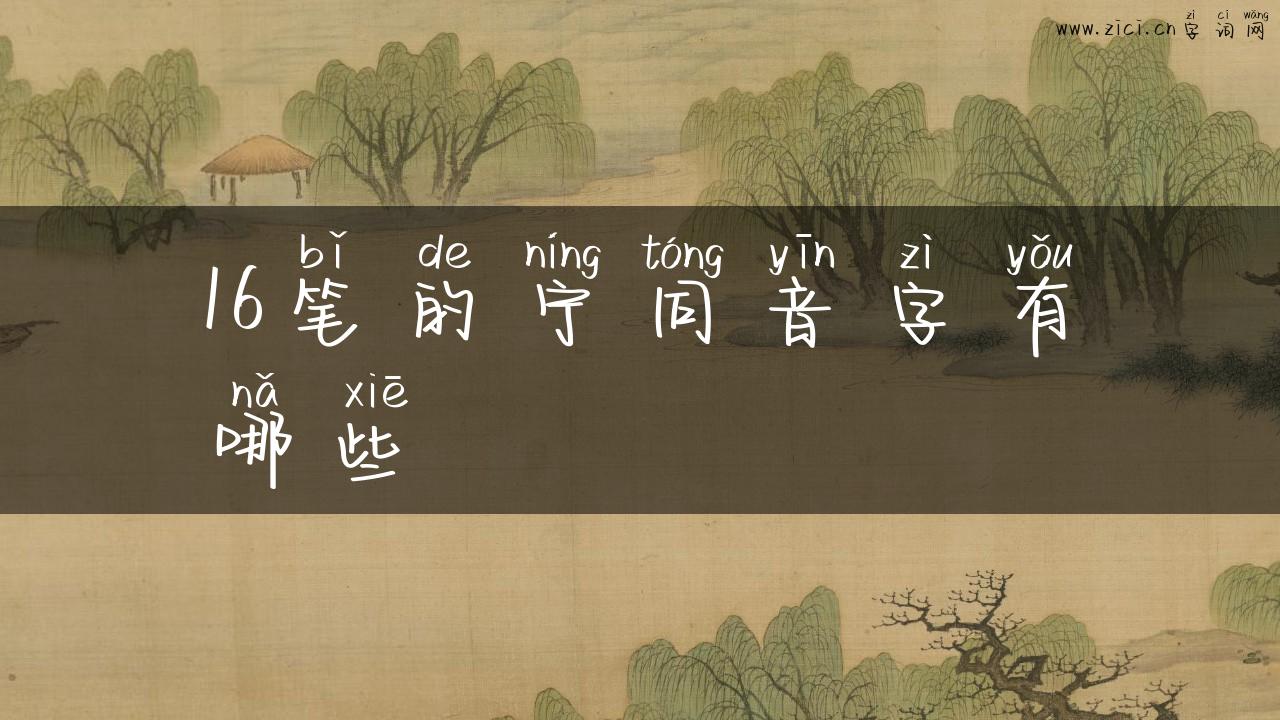 zì cí wǎng
www.zici.cn 字词网
bǐ de níng tóng yīn zì yǒu
16笔的宁同音字有
nǎ xiē
哪些